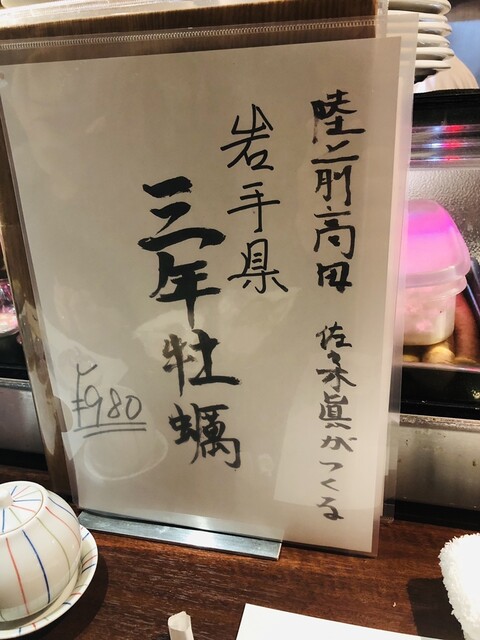 陸前高田 佐々木眞がつくる
岩手県
三年牡蠣
¥980